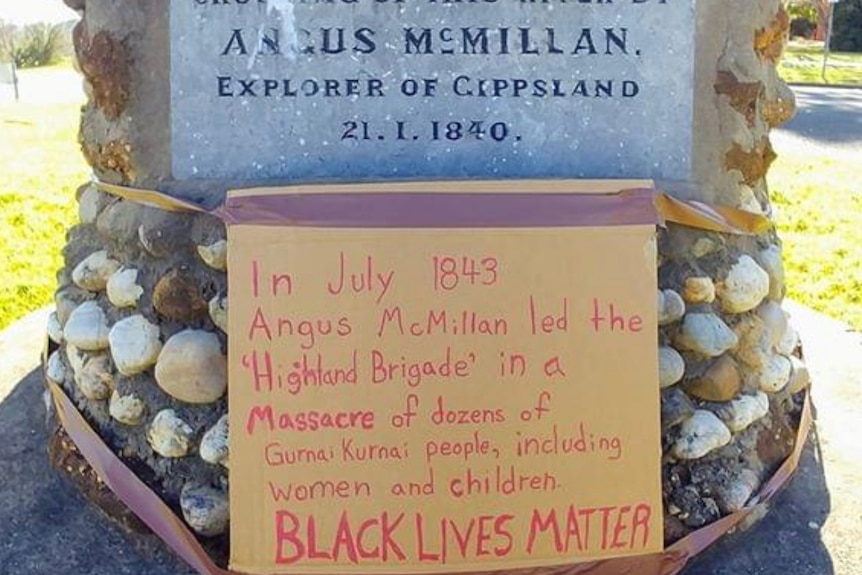 CROSSING OF THIS RIVER BY
ANGUS McMILLAN,
EXPLORER OF GIPPSLAND
21. I. 1840.
In July 1843
Angus McMillan led the
'Highland Brigade' in a
Massacre of dozens of
Gurnai Kurnai people, including
women and children.
BLACK LIVES MATTER